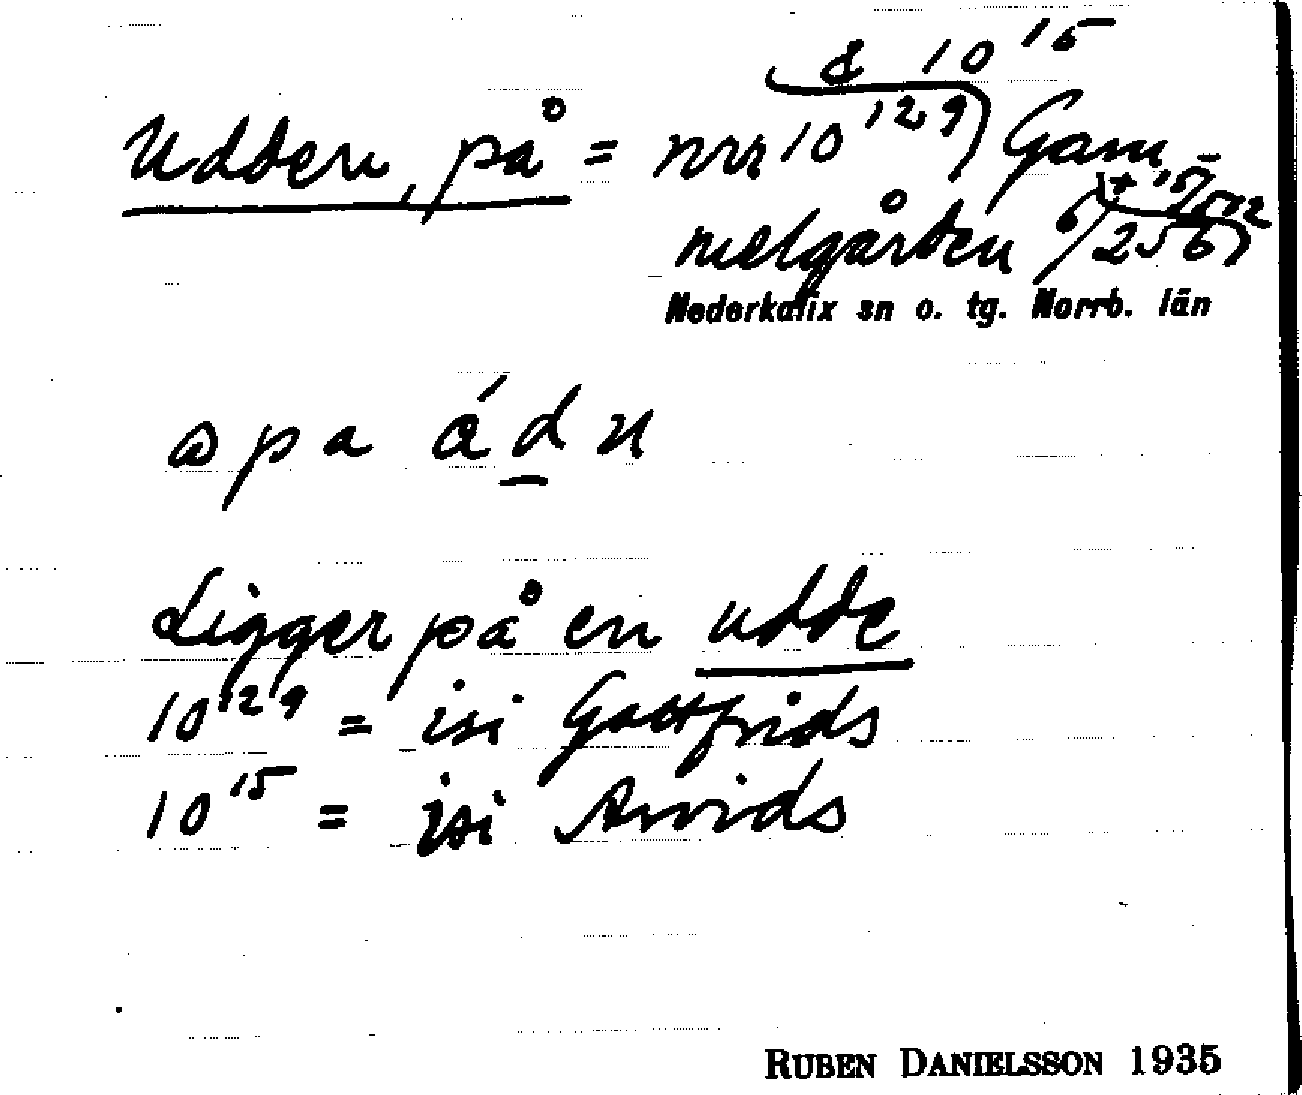 & 10¹⁵
Udden, på = nrr 10¹²⁹) Gam-
melgården 6/256 + 15/512
Nederkalix sn o. tg. Norrb. län
a p a á d n
Ligger på en udde
10¹²⁹ = isi Gottfrids
10¹⁵ = isi Arvids
RUBEN DANIELSSON 1935